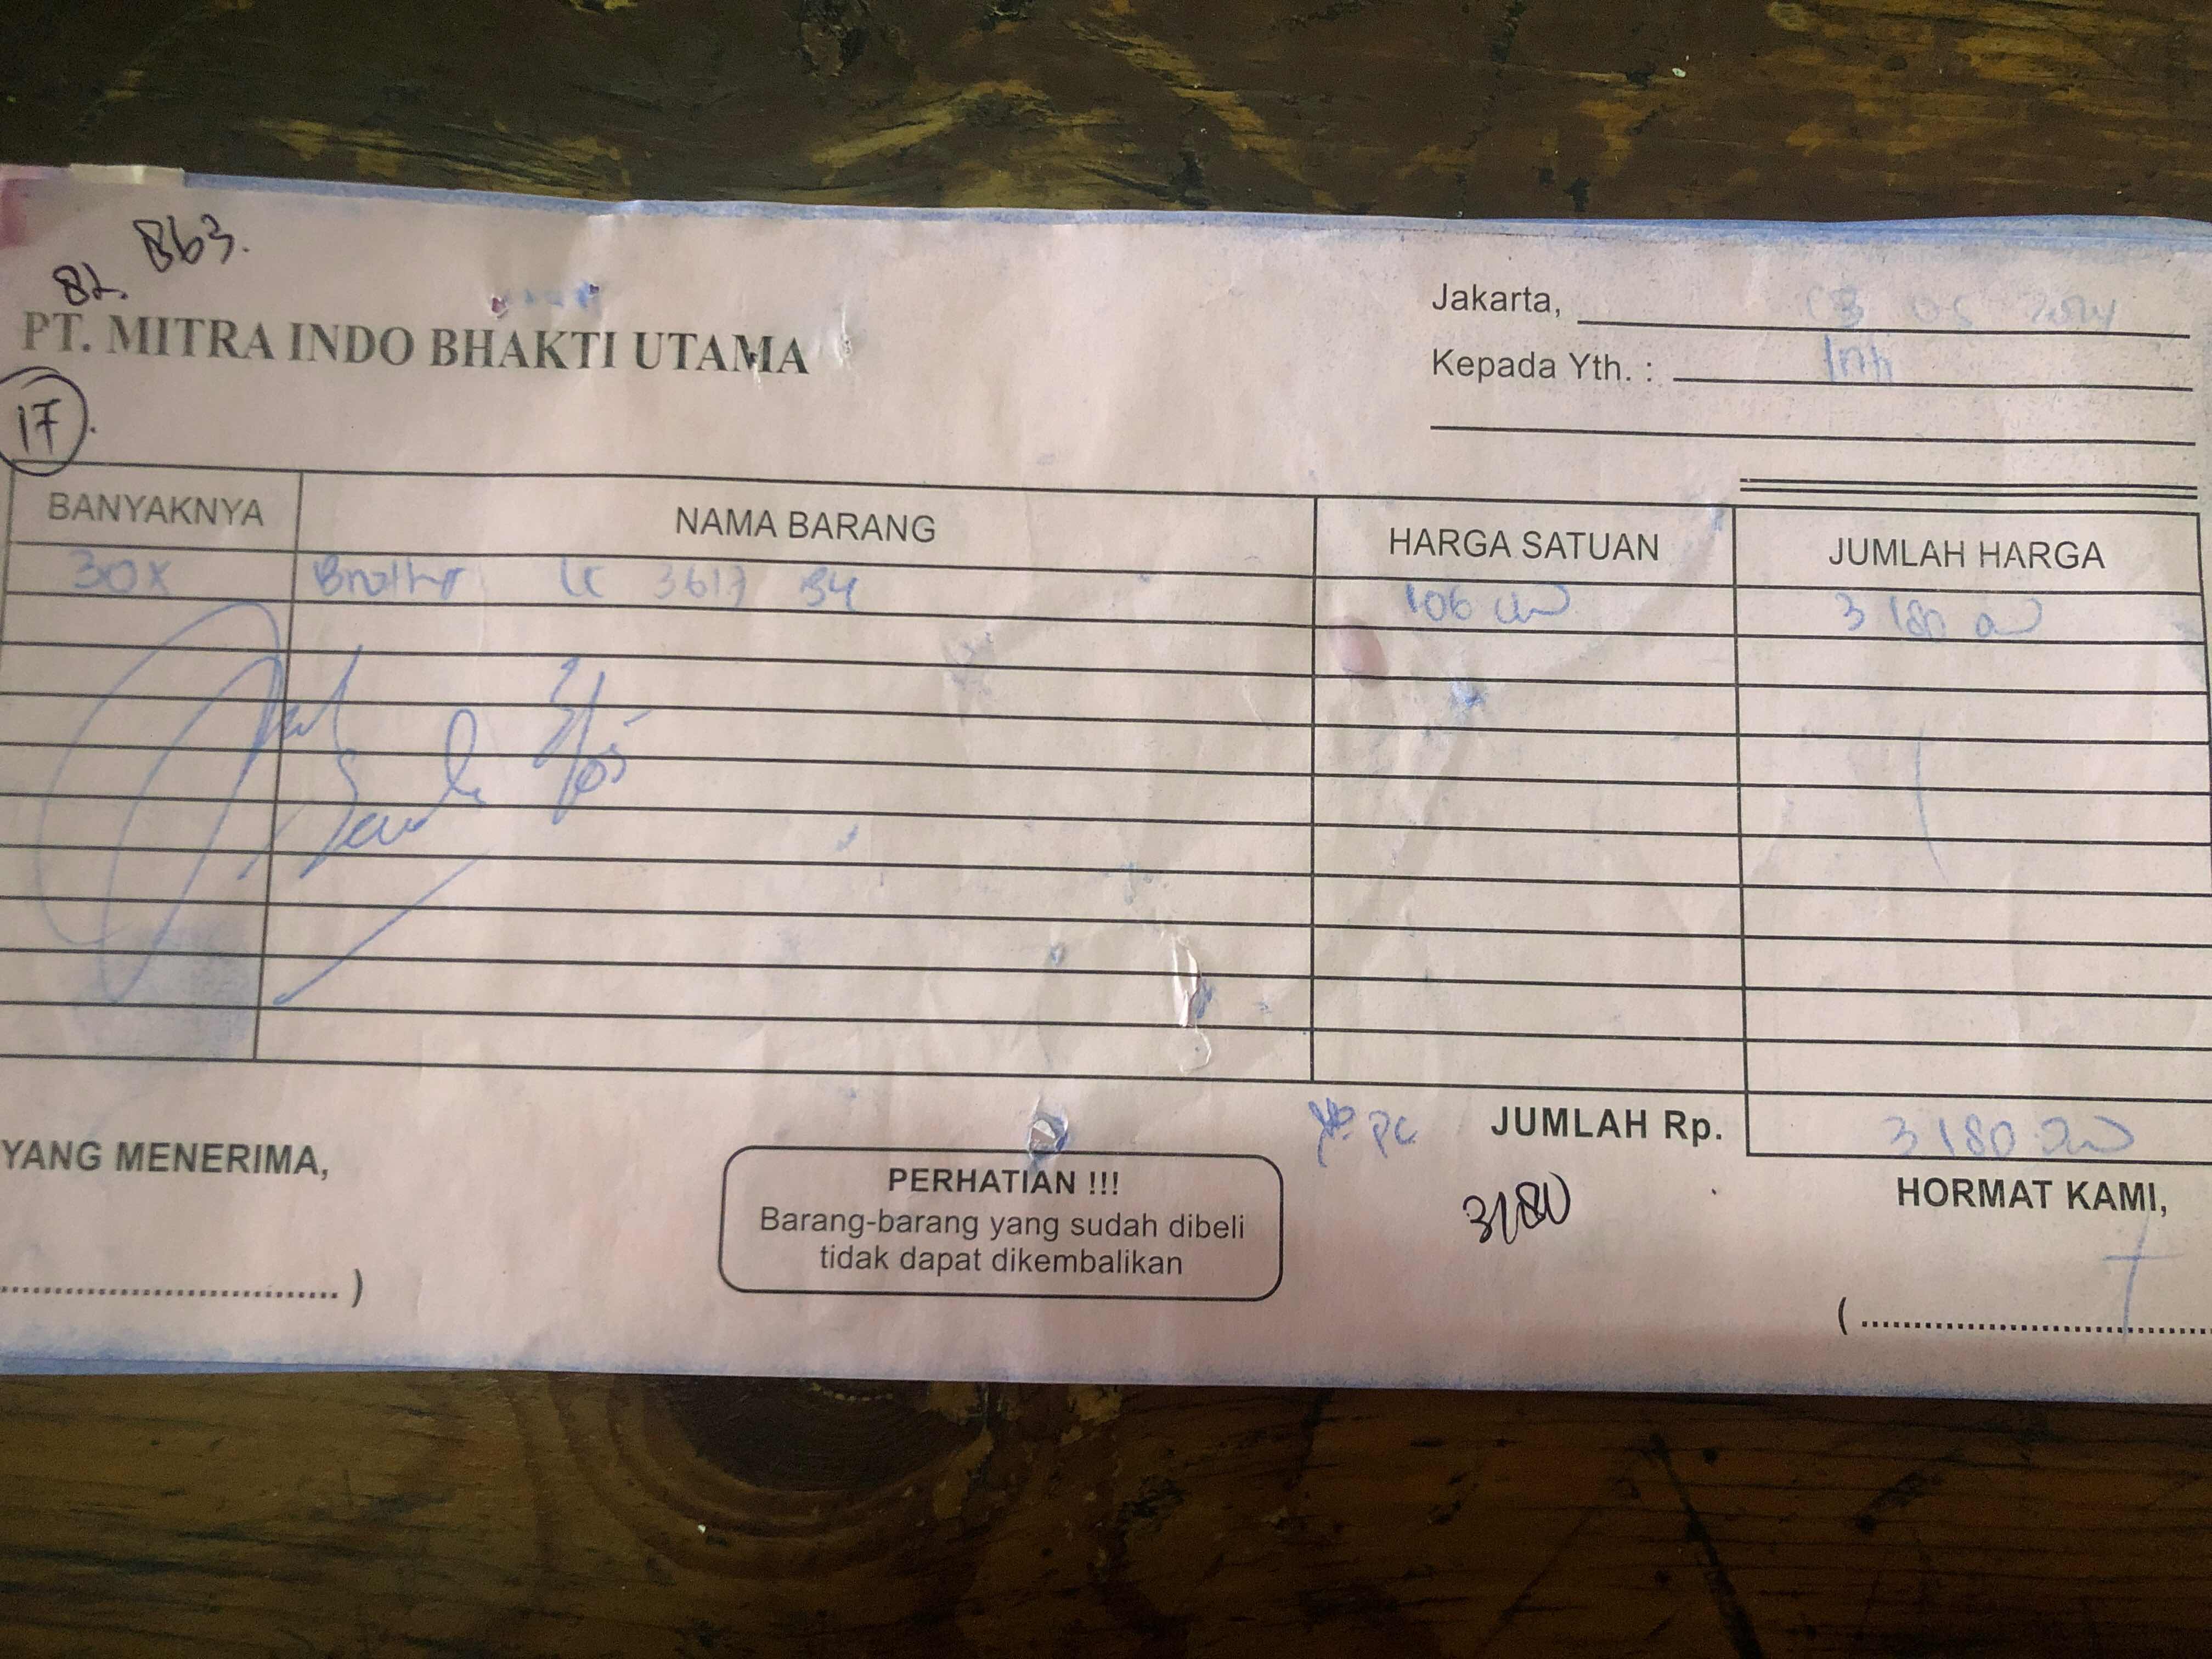 863.
82.
PT. MITRA INDO BHAKTI UTAMA
17
Jakarta, 03 05 2024
Kepada Yth. :
BANYAKNYA NAMA BARANG HARGA SATUAN JUMLAH HARGA
30X Brother LC 3617 106 3 180
3/05
JUMLAH Rp. 3 180
3180
YANG MENERIMA,
PERHATIAN !!!
Barang-barang yang sudah dibeli
tidak dapat dikembalikan
HORMAT KAMI,
.............................. )
( ..............................